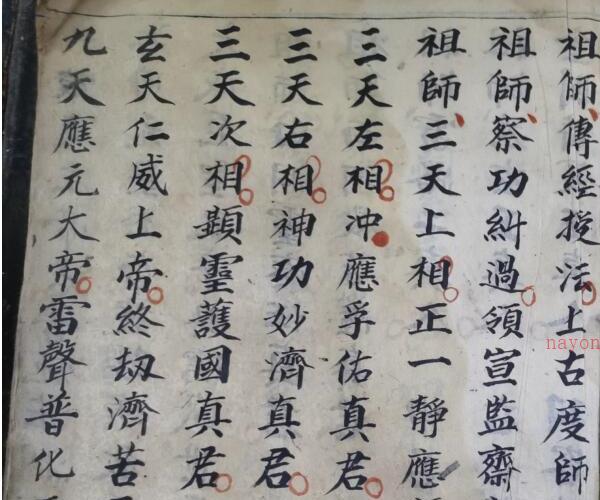 祖師傳經授法上古度師
祖師察功糾過領宣監齋
祖師三天上相正一靜應
三天左相冲應孚佑真君
三天右相神功妙濟真君
三天次相顕靈護國真君
玄天仁威上帝終劫濟苦
九天應元大帝雷聲普化
nayon